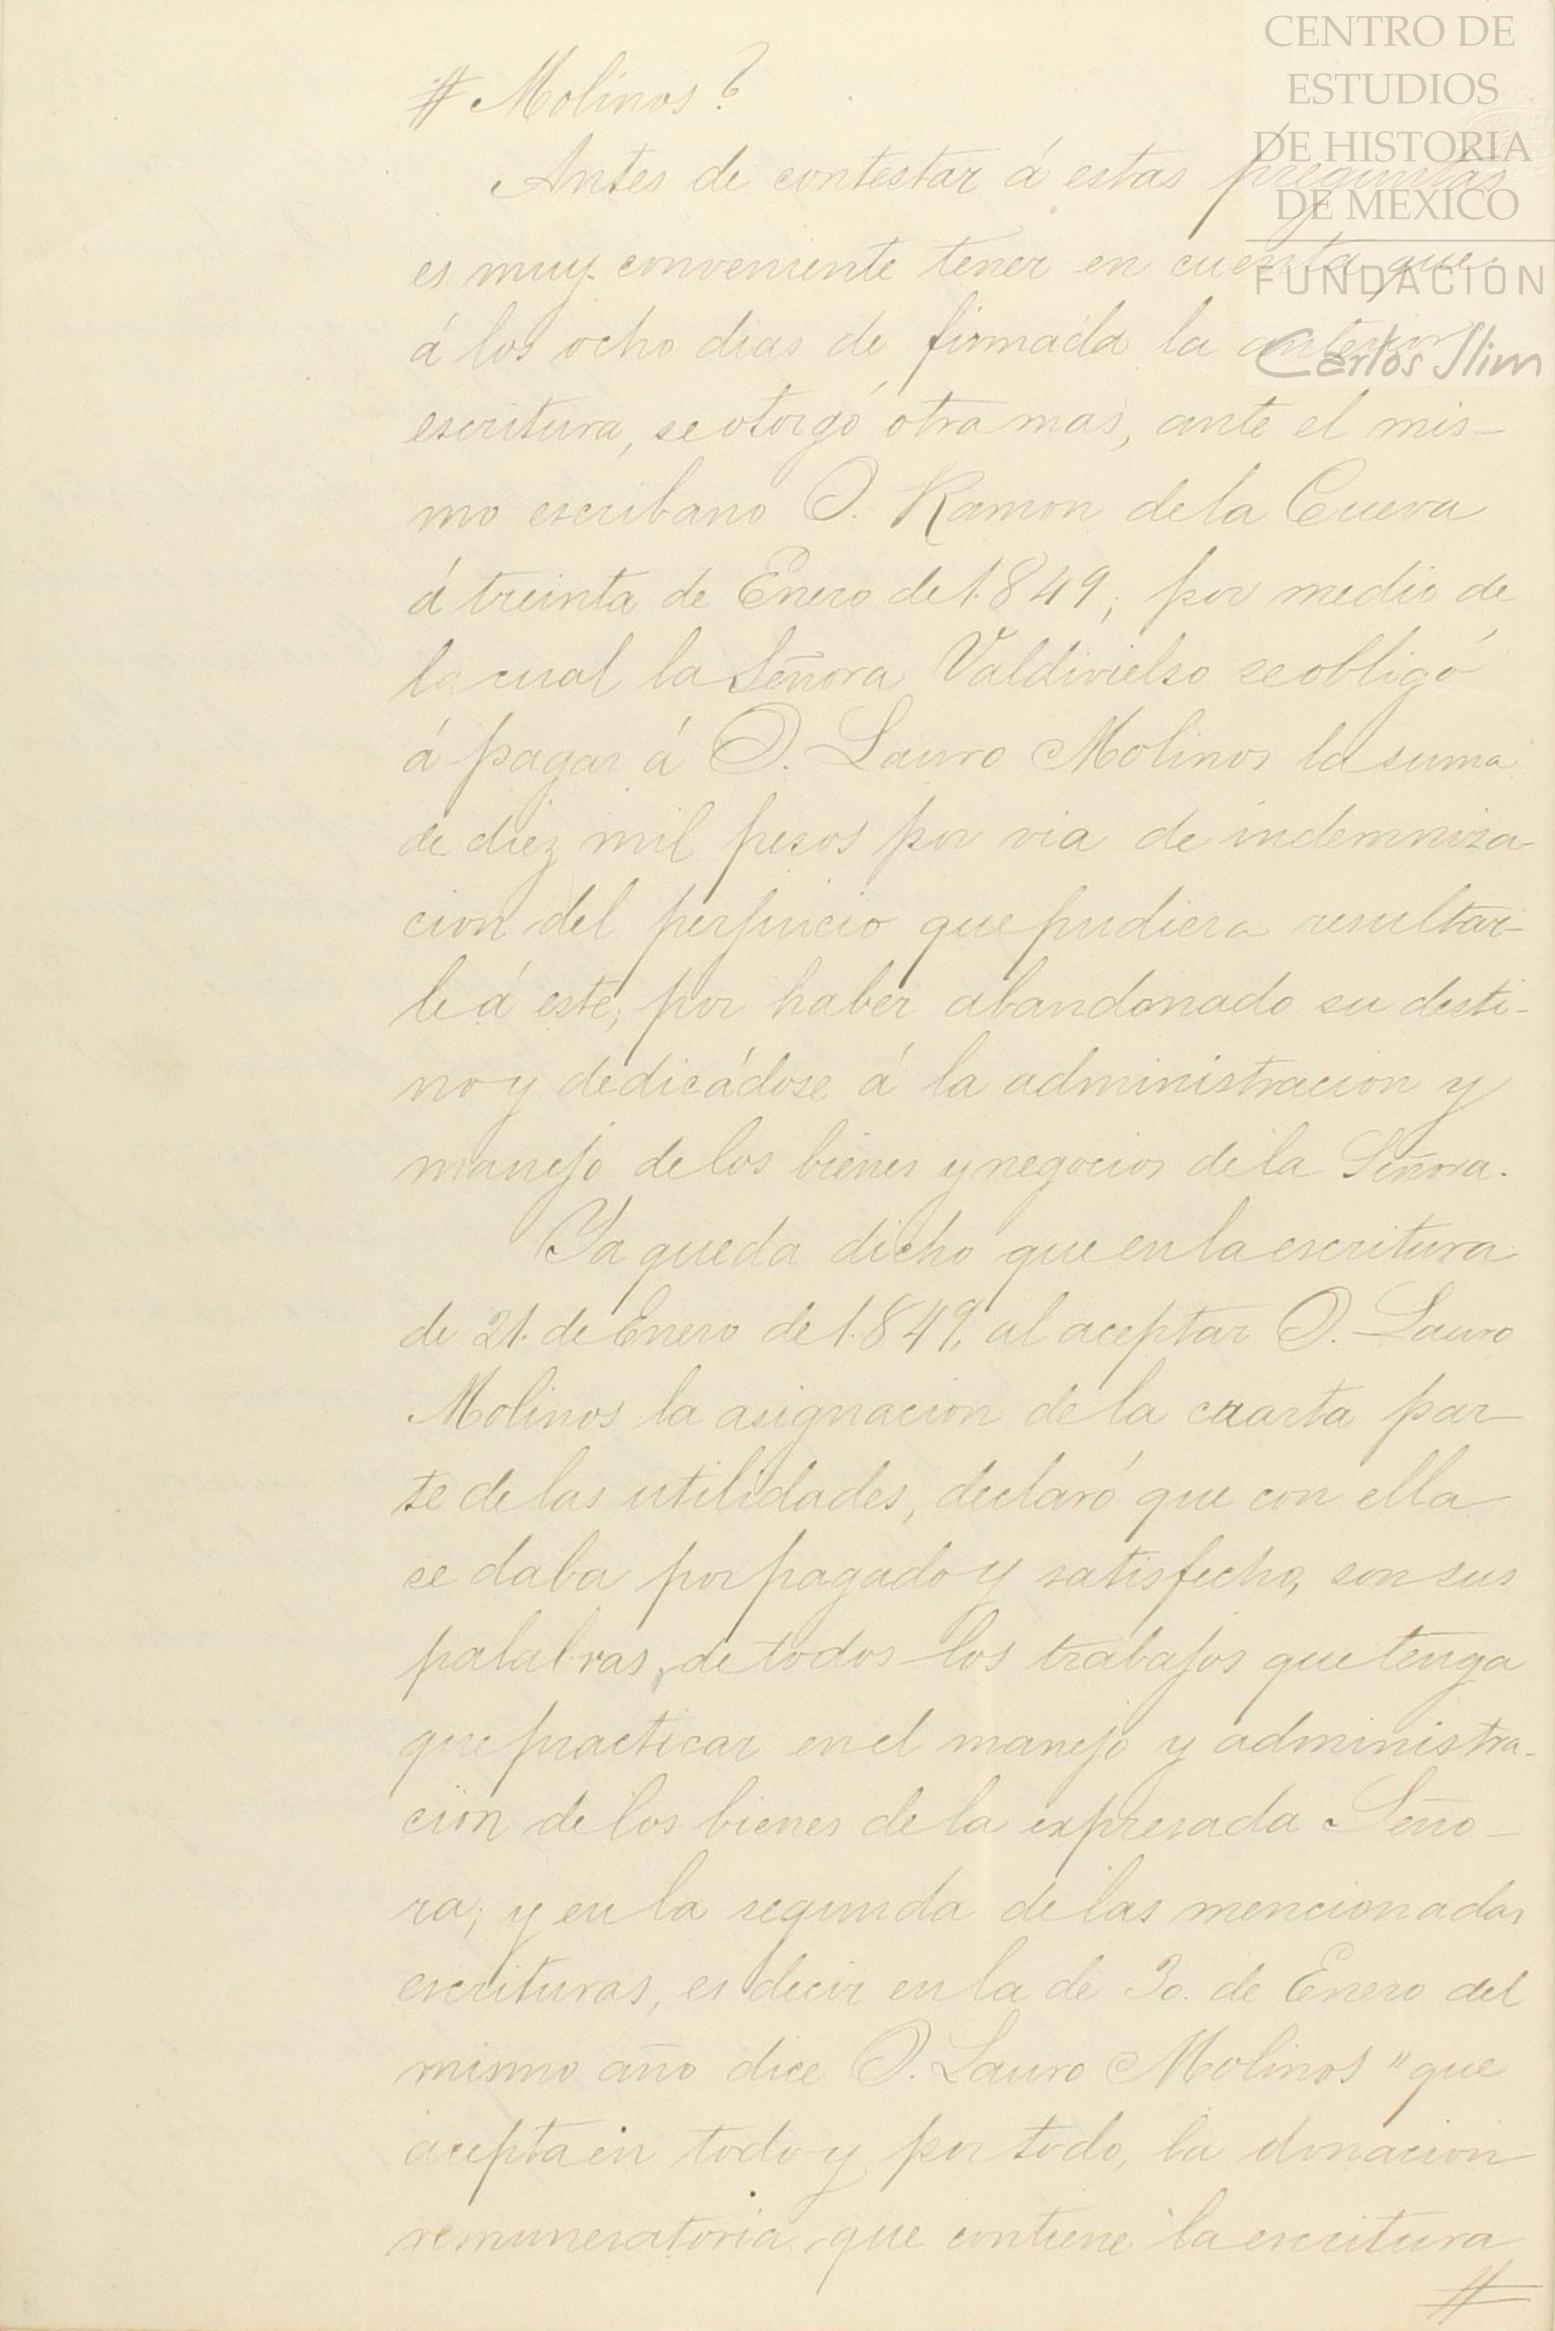 CENTRO DE
ESTUDIOS
DE HISTORIA
DE MEXICO
FUNDACION
Carlos Slim
# Molinos?
Antes de contestar á estas preguntas
es muy conveniente tener en cuenta que
á los ocho dias de firmada la anterior
escritura, se otorgó otra mas, ante el mis-
mo escribano D. Ramon de la Cueva
á treinta de Enero de 1849; por medio de
la cual la Señora Valdivielso se obligó
á pagar á D. Lauro Molinos la suma
de diez mil pesos por via de indemniza-
cion del perjuicio que pudiera resultar-
le á este, por haber abandonado su desti-
no y dedicádose á la administracion y
manejo de los bienes y negocios de la Señora.
Ya queda dicho que en la escritura
de 21. de Enero de 1849, al aceptar D. Lauro
Molinos la asignacion de la cuarta par-
te de las utilidades, declaró que con ella
se daba por pagado y satisfecho, son sus
palabras, de todos los trabajos que tenga
que practicar en el manejo y administra-
cion de los bienes de la expresada Seño-
ra; y en la segunda de las mencionadas
escrituras, es decir en la de 30. de Enero del
mismo año dice D. Lauro Molinos "que
acepta en todo y por todo, la donacion
remuneratoria que contiene la escritura
#